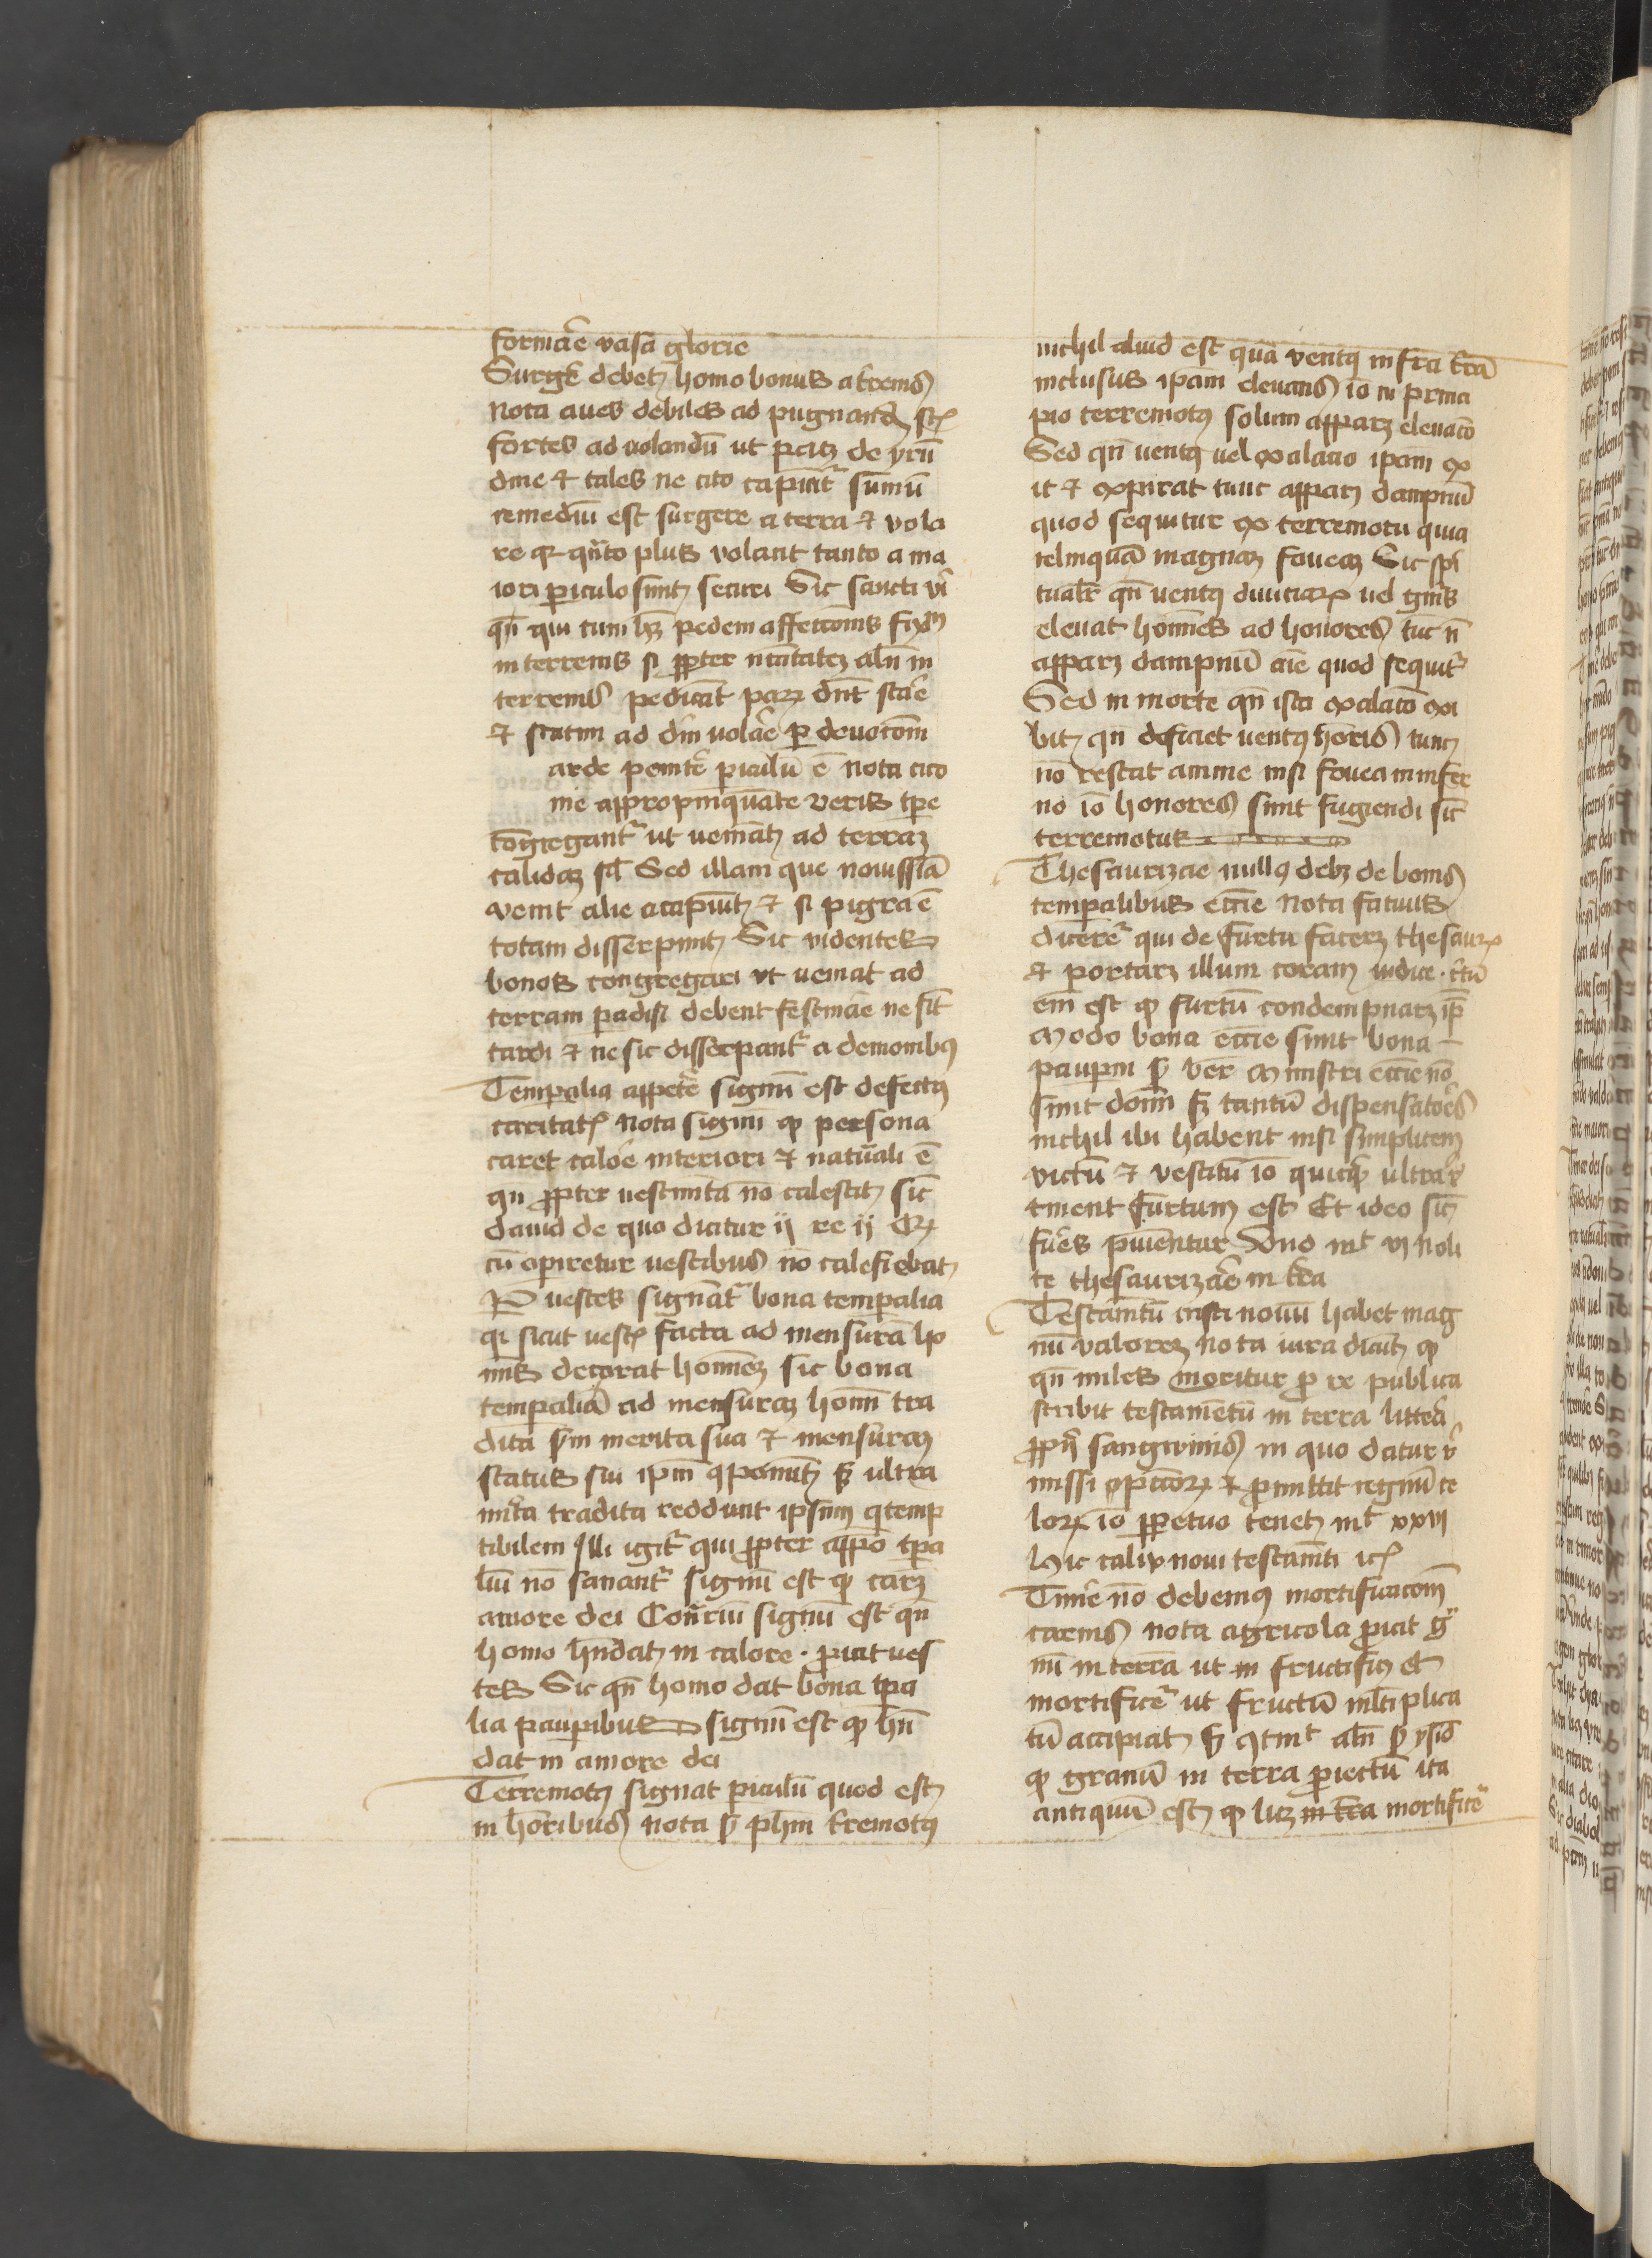 formare vasa glorie
Surgere debet homo bonus a terrenis
Nota aues debiles ad pugnand sunt
fortes ad uolandū ut patet de yrun
dine et tales ne cito capiant sūmū
remediū est surgere a terra et vola
re qr quāto plus volant tanto a ma
iori periculo sunt securi Sic sancti viri
qn̄ qui tum hn̄t pedem affectionis fixum
in terrenis si propter nc̄itatē aliqn̄ in
terrenis pedicāt parum dn̄t stare
et statim ad dm̄ uolare per deuotōm
arde penitere periculū ē nota cico
nie appropinquāte veris tp̄e
congregantr ut veniāt ad terram
calidam Sed illam que nouissia
venit alie accipiūt et si pigra ē
totam discerpunt Sic videntes
bonos congregari vt veniat ad
terram paradisi debent festinare ne sint
tardi et ne sic discerpantr a demonibus
Temporalia appetere signū est defectus
caritatis Nota signū qp persona
caret calore interiori et naturali ē
qn̄ propter uestimta no calescit sic
dauid de quo dicitur ij re ij Qr
cū operiretur uestibus no calefiebat
Per uestes signantr bona temporalia
qr sicut uestis facta ad mensurā ho
minis decorat hominem sic bona
temporalia ad mensuram homini tra
dita scdm merita sua et mensuram
status sui ipm componunt sed ultra
merita tradita reddunt ipsum contemp
tibilem Illi igitr qui propter app̄o tpra
liū no sanantr signū est qp caret
amore dei Contrariū signū est qn̄
homo habundat in calore proicit ues
tes Sic qn̄ homo dat bona tpra
lia pauperibus signū est qp habun
dat in amore dei
Terremotus signat periculū quod est
in honoribus nota scdm phm terremotus
nichil aliud est quā ventus infra terrā
inclusus ipam eleuans io in princi
pio terremotus solum apparet eleuacō
Sed qn̄ uentus uel exalacio ipam ex
it et expirat tunc apparet dampnū
quod sequitur ex terremotu quia
relinquā magnam foueam Sic spi
tualr qn̄ uentus diuiciarum uel generis
eleuat homines ad honores tūc n
apparet dampnū aīe quod sequitr
Sed in morte qn̄ ista exalacō exi
bit qn̄ deficiet uentus honoris tunc
no restat anime nisi fouea in infer
no io honores sunt fugiendi sicut
terremotus
Thesaurizare nullus debet de bonis
temporalibus eccie Nota fatuus
diceretr qui de furtu faceret thesaur
et portaret illum coram iudice certū
em est qp furtū condempnaret ipm
Modo bona eccie sunt bona
pauperum scdm ber Ministri eccie no
sunt domini sed tantū dispensatores
nichil ibi habent nisi simplicem
victū et vestitū io quicquid ultra re
tinent furtum est Et ideo sicut
fures punientur Vnd mt vj noli
te thesaurizare in terra
Testamtū cristi nouū habet mag
nū valorem Nota iura dicūt qp
qn̄ miles moritur pro re publica
scribit testamentū in terra littera
proprii sangwinis in quo datur re
missi opccorum et promittit regnū ce
lorum io perpetuo tenet mt xxvj
Hic calix noui testamti ic
Timere no debemus mortificacōm
carnis Nota agricola proicit gra
nū in terra ut in fructificet et
mortificetr ut fructū multiplica
tū accipiat sed contingit aliqn̄ scdm ysid
qp granū in terra proiectū ita
antiquū est qp licet in terra mortificetr